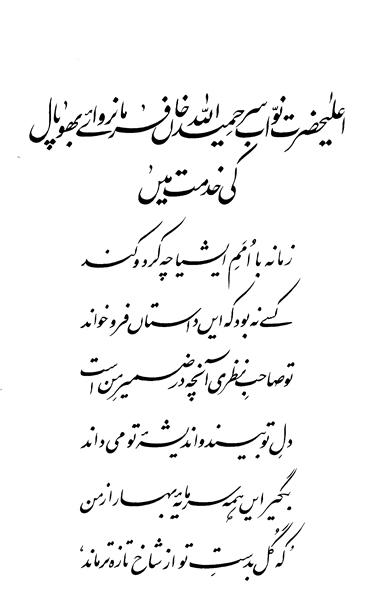 اعلیٰحضرت نوّاب سر حمید اللہ خاں فرمانروائے بھوپال
کی خدمت میں
زمانہ با اُمَمِ ایشیا چہ کرد و کند
کسے نہ بود کہ ایں داستاں فرو خواند
تو صاحبِ نظری آنچہ در ضمیرِ من است
دلِ تو بیند و اندیشۂ تو می داند
بگیر ایں ہمہ سرمایۂ بہار از من
’کہ گُل بدستِ تو از شاخ تازہ تر ماند‘